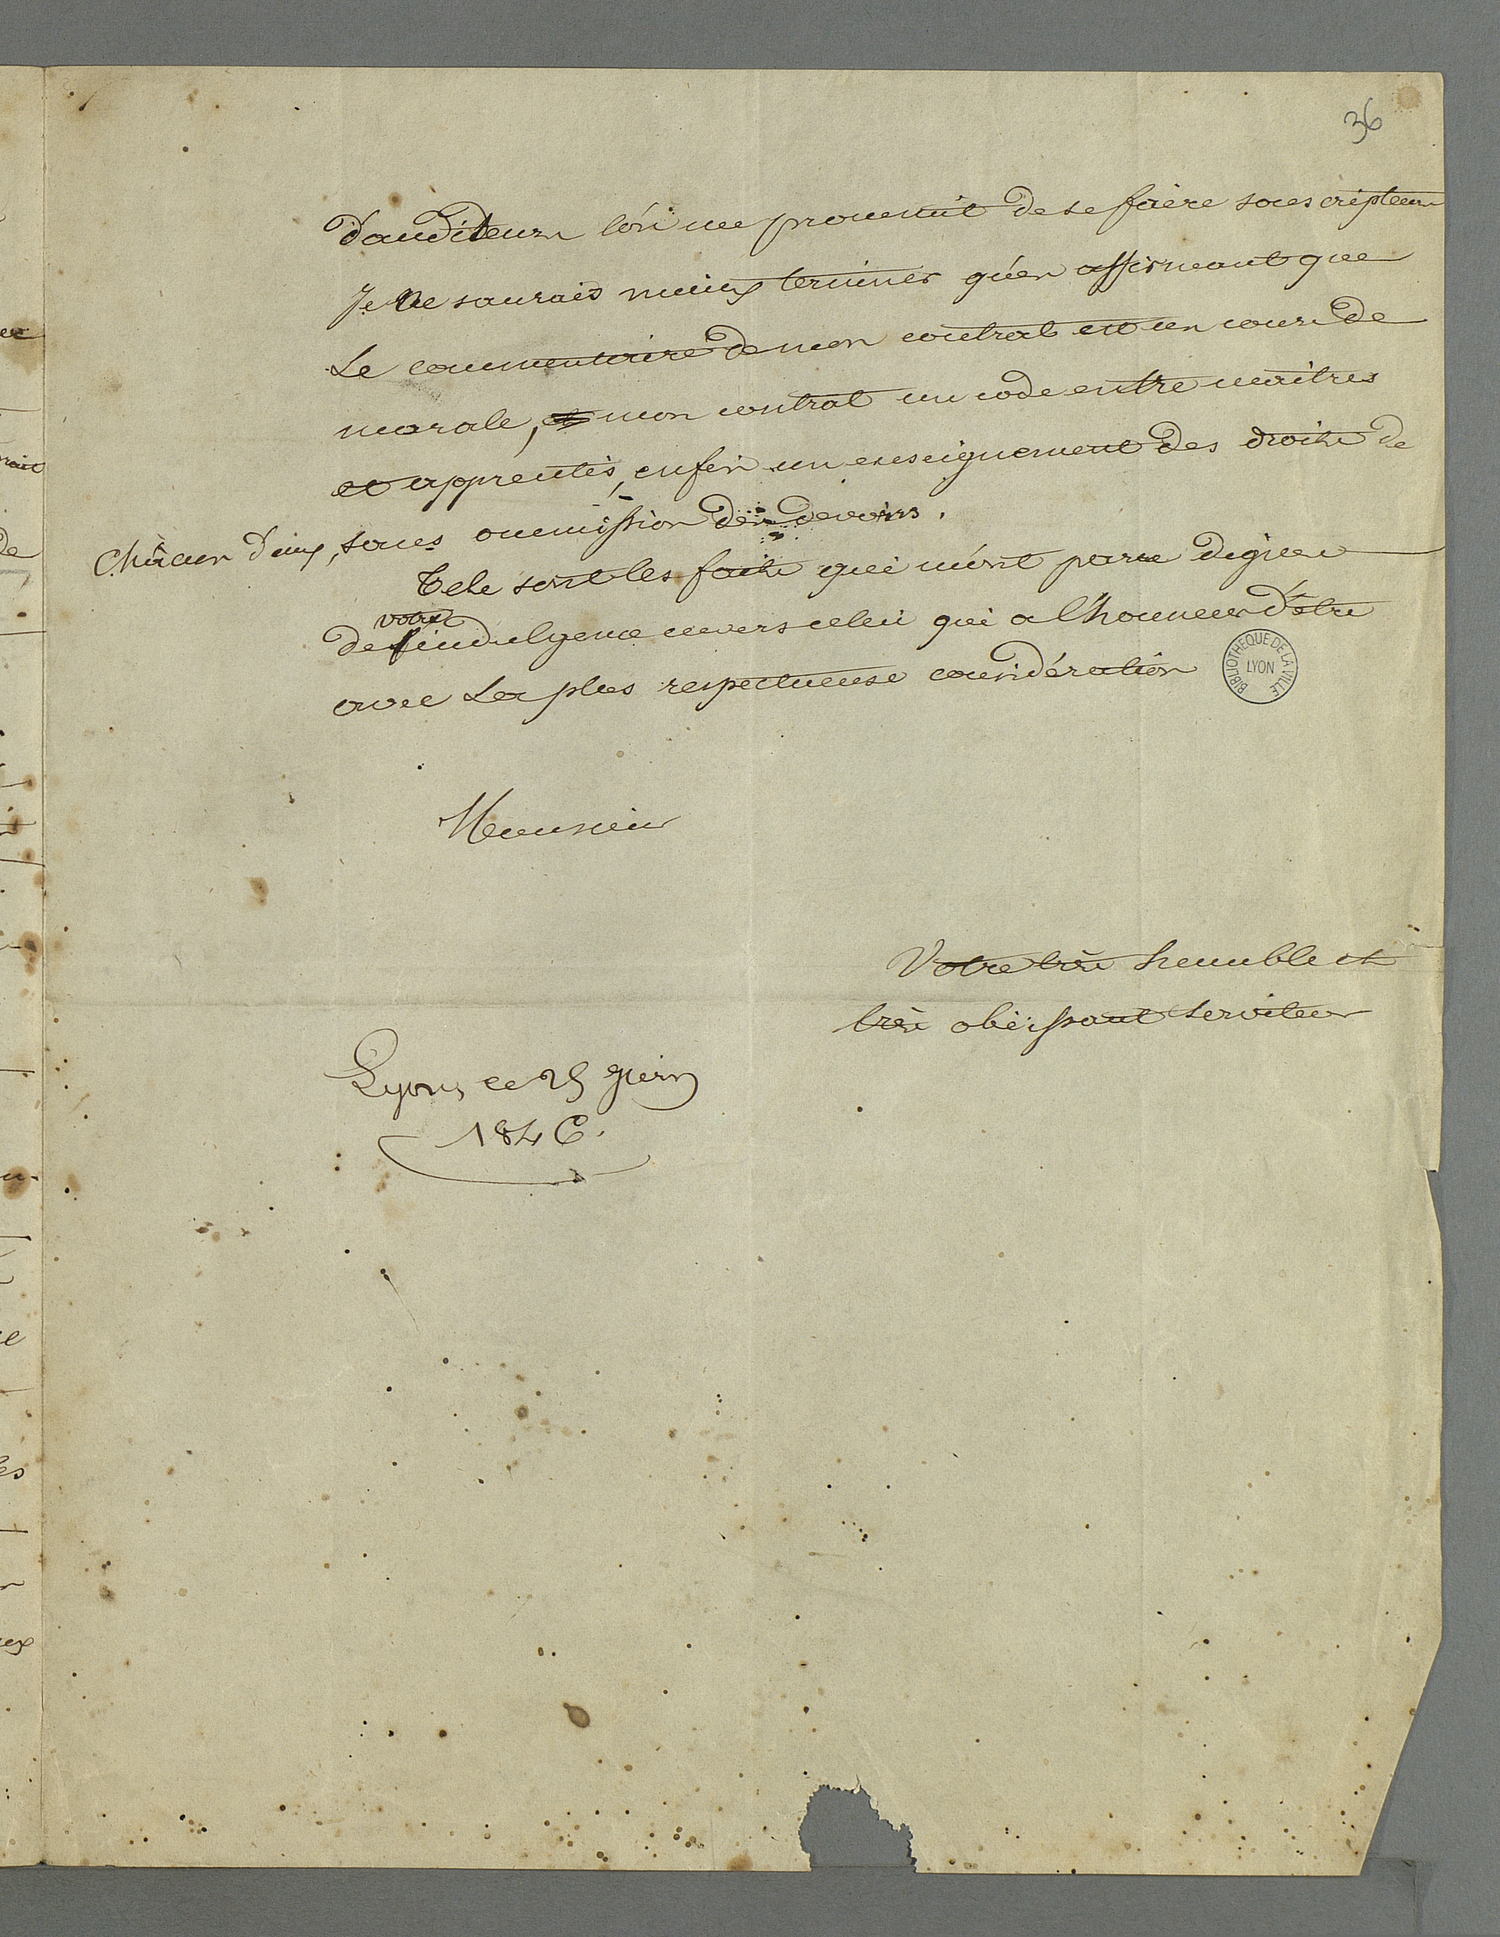 36
d'auditeurs l'on me promettait de se faire souscripteurs
Je ne saurais mieux terminer qu'en affirmant que
Le commentaire de mon contrat est un cours de
morale, mon contrat un code entre maîtres
et apprentis, enfin un enseignement des droits de
Chacun d'eux, sans ommission des devoirs.
Tels sont les faits qui m'ont paru dignes
votre
de indulgence envers celui qui a l'honneur d'être
avec La plus respectueuse considération
BIBLIOTHEQUE DE LA VILLE
LYON
Monsieur
Votre très humble et
très obéissant serviteur
Lyon, ce 25 juin
1846.